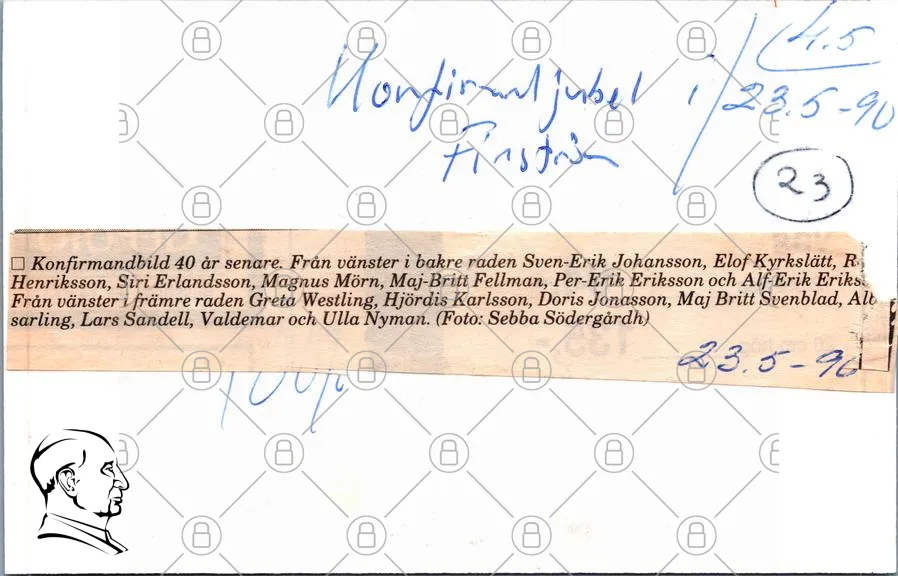 4.5
Konfirmandjubel i
23.5-90
Finström
23
□ Konfirmandbild 40 år senare. Från vänster i bakre raden Sven-Erik Johansson, Elof Kyrkslätt, R
Henriksson, Siri Erlandsson, Magnus Mörn, Maj-Britt Fellman, Per-Erik Eriksson och Alf-Erik Eriks
Från vänster i främre raden Greta Westling, Hjördis Karlsson, Doris Jonasson, Maj Britt Svenblad, Alb
sarling, Lars Sandell, Valdemar och Ulla Nyman. (Foto: Sebba Södergårdh)
23.5-90
100%